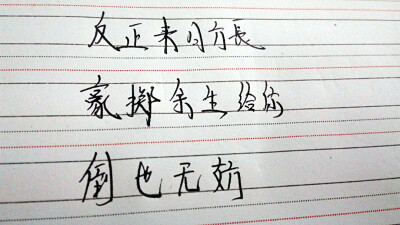 反正来日方長
豪掷余生给你
倒也无妨